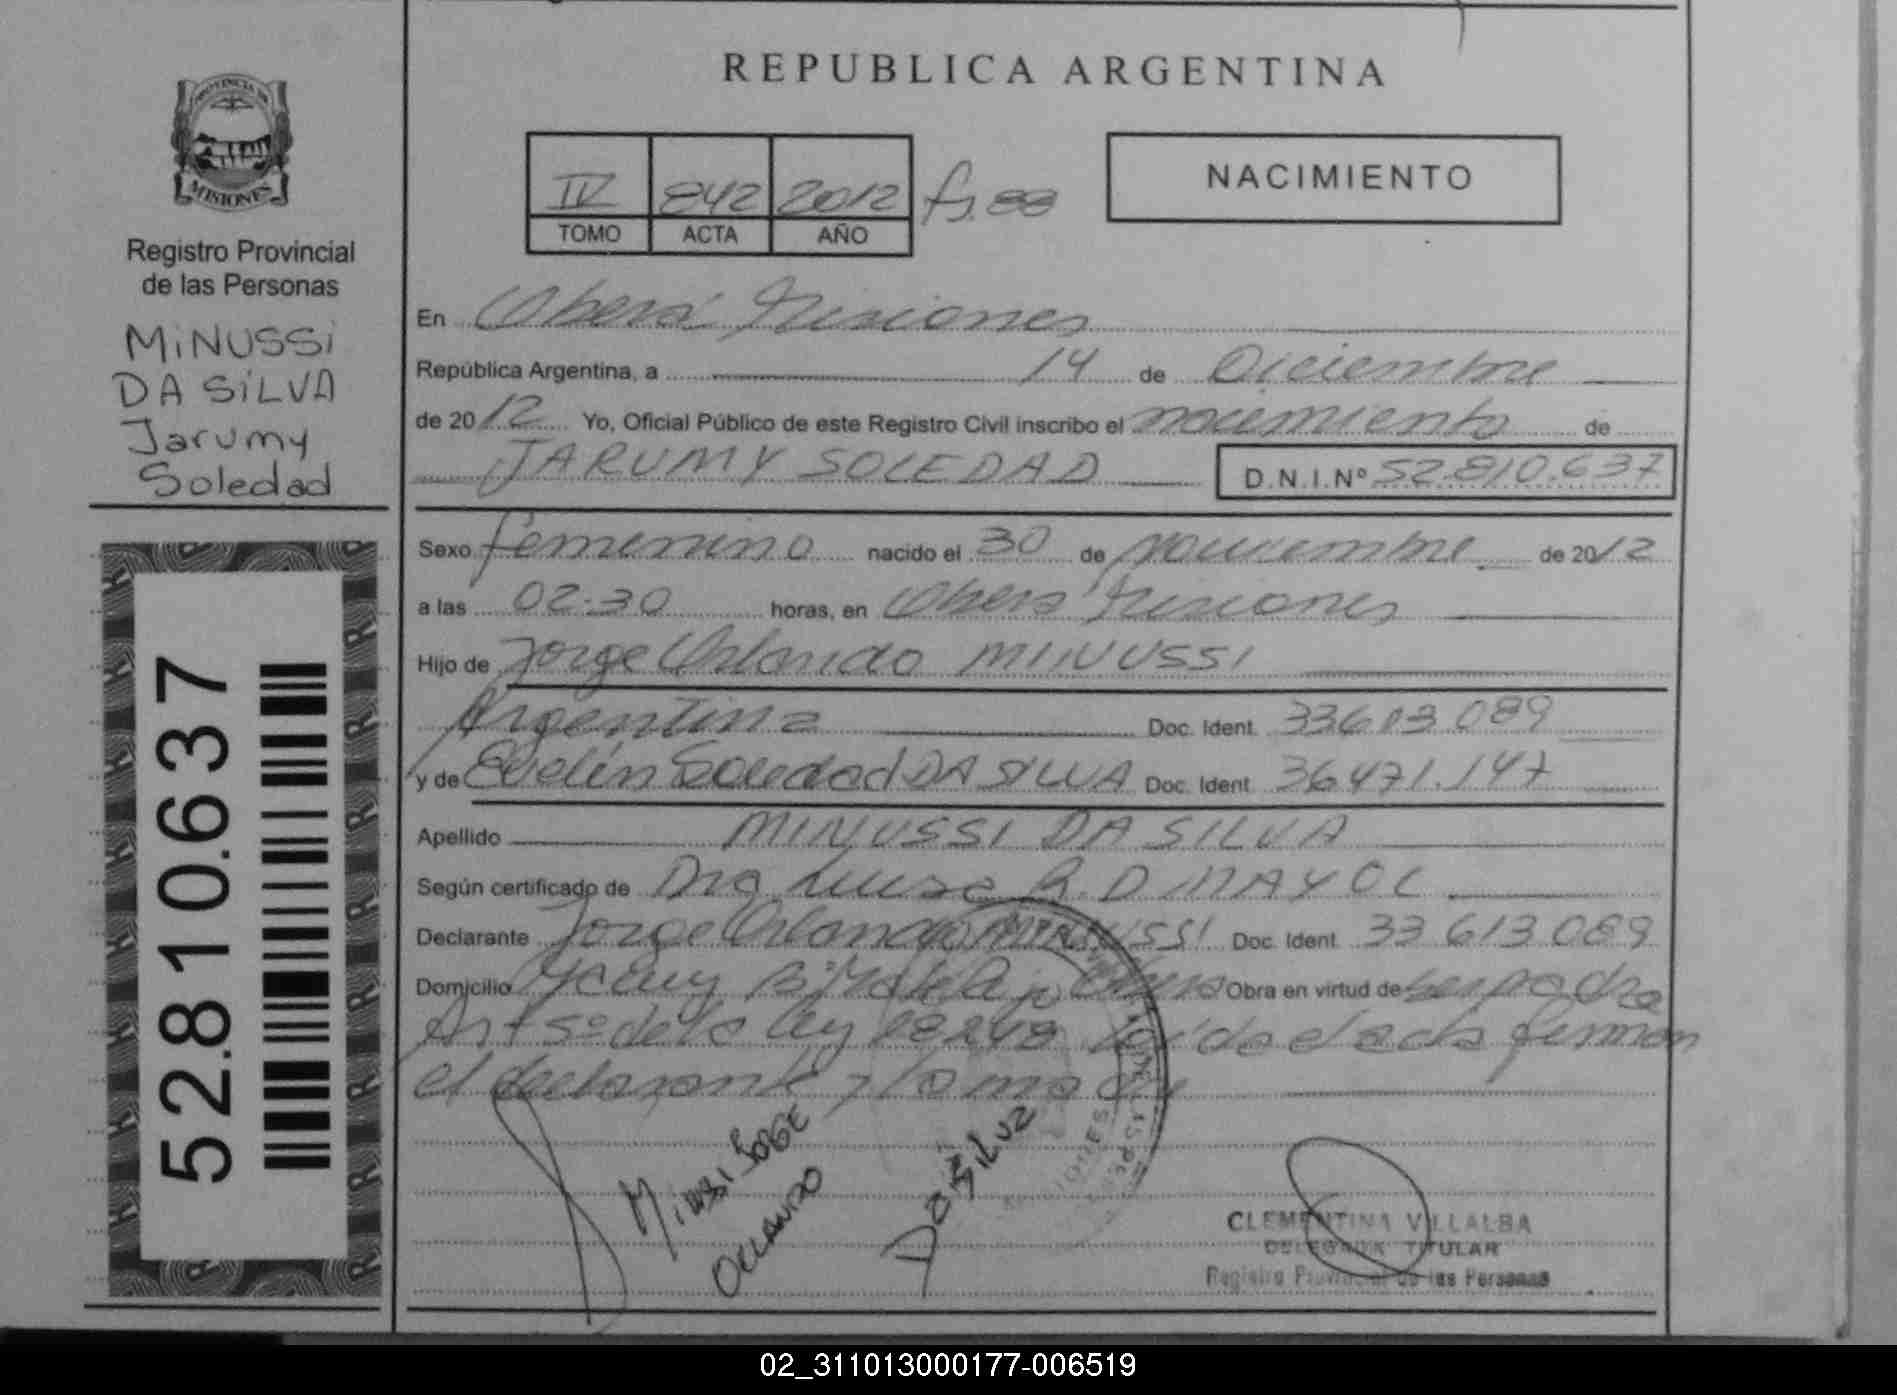 REPUBLICA ARGENTINA
PROVINCIA DE
MISIONES
Registro Provincial
de las Personas
MiNUSSi
DA SiLVA
Jarumy
Soledad
52.810.637
IV 842 2012 fs. 88
TOMO ACTA AÑO
NACIMIENTO
En Oberá Misiones
República Argentina, a 14 de Diciembre
de 2012 Yo, Oficial Público de este Registro Civil inscribo el nacimiento de
JARUMY SOLEDAD D.N.I.Nº 52.810.637
Sexo femenino nacido el 30 de noviembre de 2012
a las 02:30 horas, en Oberá Misiones
Hijo de Jorge Orlando MINUSSI
Argentina Doc. Ident. 33613.089
y de Evelin Soledad DA SILVA Doc. Ident 36.471.147
Apellido MINUSSI DA SILVA
Según certificado de Dra Luisa R. D MAYOL
Declarante Jorge Orlando MINUSSI Doc. Ident. 33 613 089
Domicilio Obra en virtud de ser padre
Art 5º de la ley 18248 Leída el acta firman
el declarante y la madre
MiNUSSI JORGE
ORLANDO
DA SILVA
CLEMENTINA VILLALBA
DELEGADA TITULAR
Registro Provincial de las Personas
02_311013000177-006519